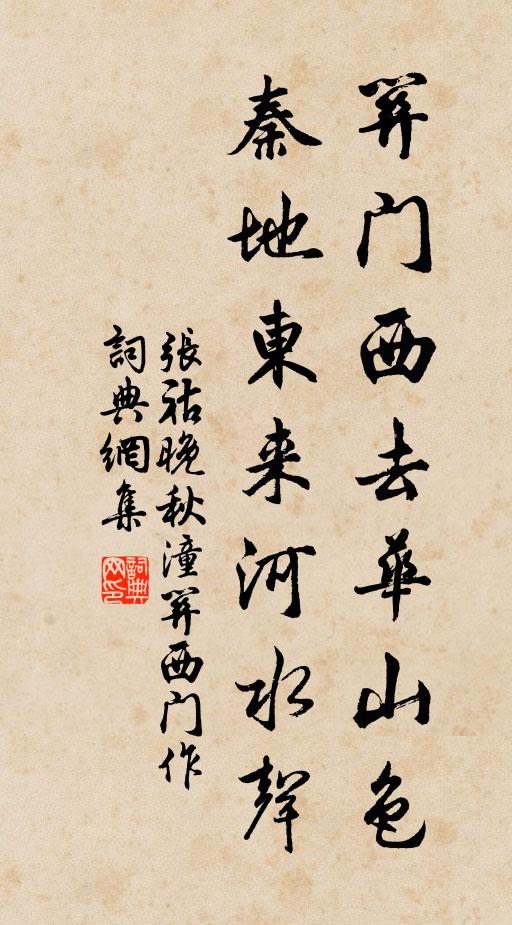 関门西去華山色
秦地東来河水聲
張祜晚秋潼関西门作
詞典網集
詞典网印